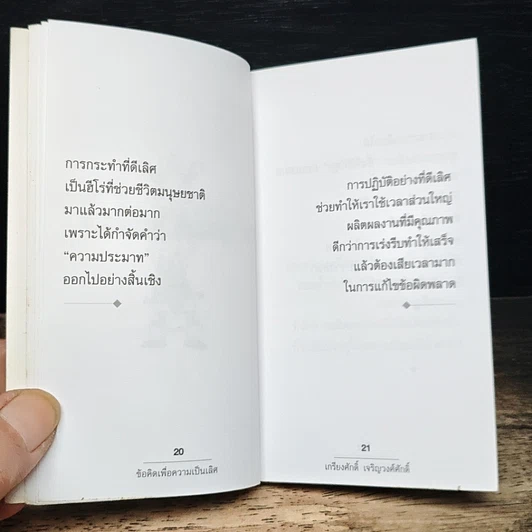 การกระทำที่ดีเลิศ
เป็นฮีโร่ที่ช่วยชีวิตมนุษยชาติ
มาแล้วมากต่อมาก
เพราะได้กำจัดคำว่า
“ความประมาท”
ออกไปอย่างสิ้นเชิง
20
ข้อคิดเพื่อความเป็นเลิศ
การปฏิบัติอย่างที่ดีเลิศ
ช่วยทำให้เราใช้เวลาส่วนใหญ่
ผลิตผลงานที่มีคุณภาพ
ดีกว่าการเร่งรีบทำให้เสร็จ
แล้วต้องเสียเวลามาก
ในการแก้ไขข้อผิดพลาด
21
เกรียงศักดิ์ เจริญวงศ์ศักดิ์